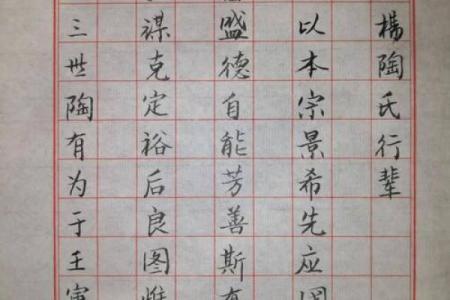 楊陶氏行輩
以本宗景希先应
盛德自能芳善斯有
谋克定裕后良图惟
三世陶有为于壬寅